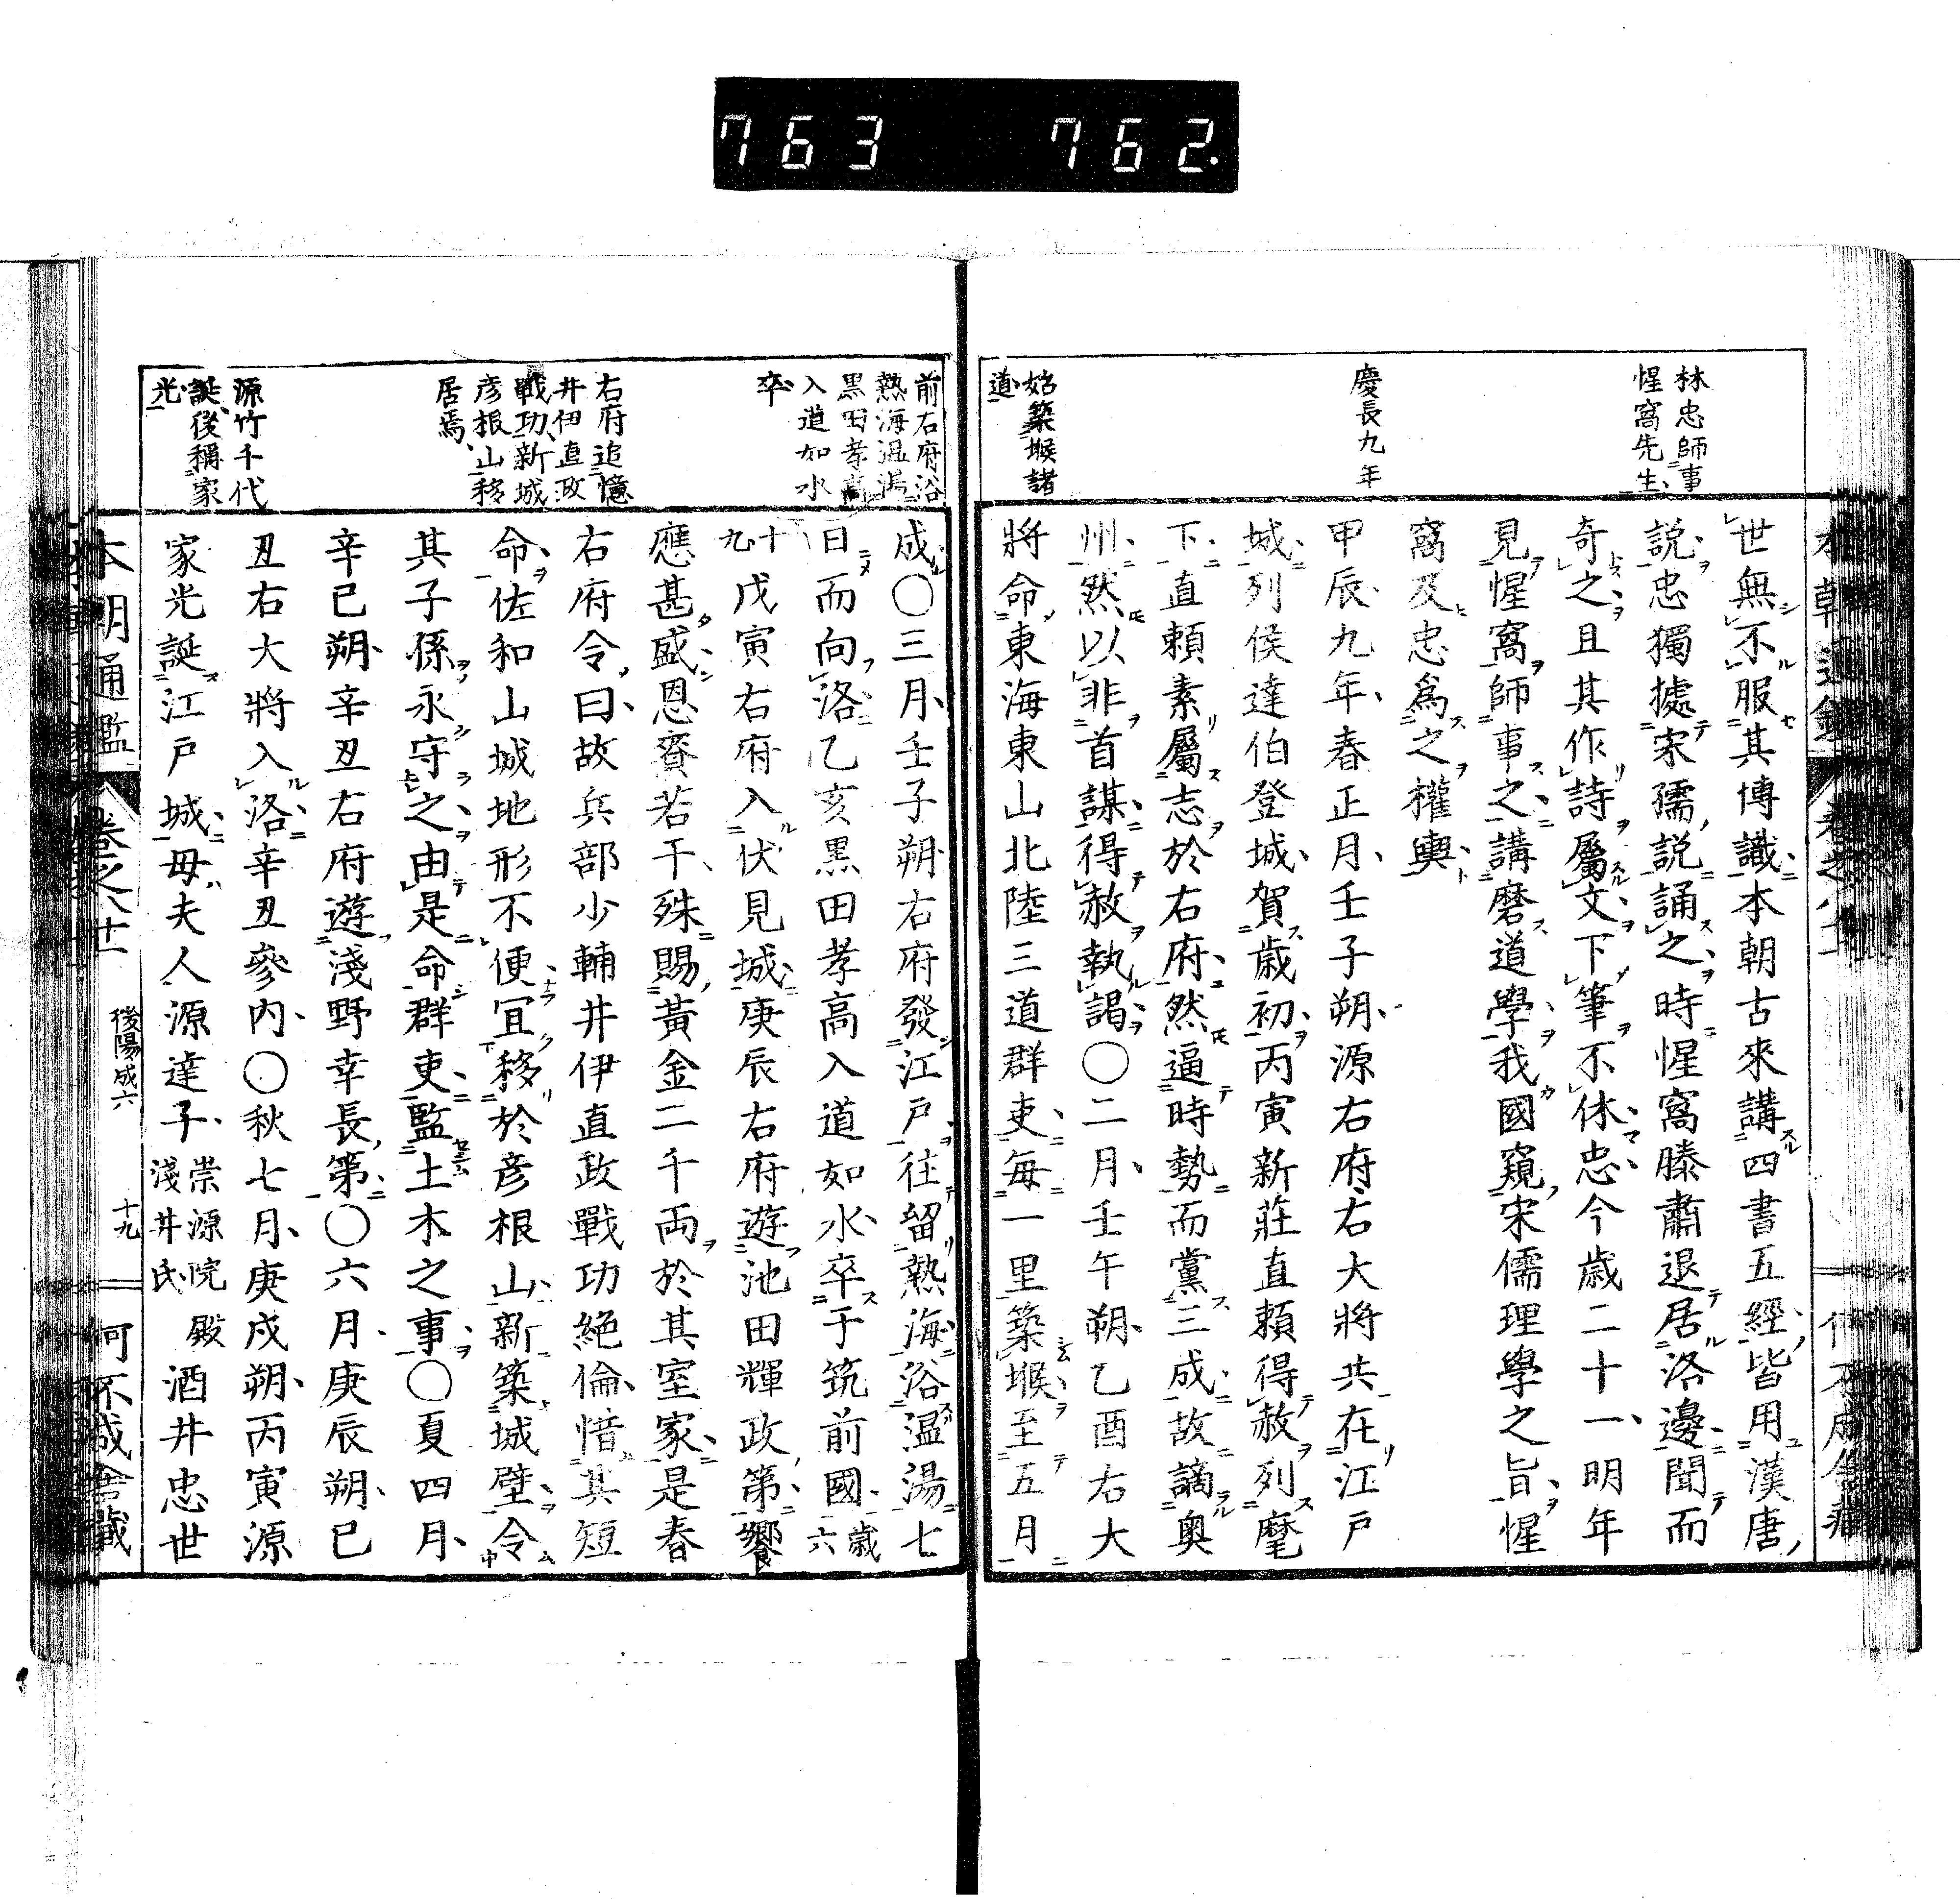 763 762.
林忠師事
惺窩先生
慶長九年
始築堠諸
道
世無不服其博識本朝古來講四書五經皆用漢唐
說忠獨據宋儒說誦之時惺窩滕肅退居洛邊聞而
奇之且其作詩屬文下筆不休忠今歲二十一明年
見惺窩師事之講磨道學我國窺宋儒理學之旨惺
窩及忠爲之權輿
甲辰九年春正月壬子朔源右府右大將共在江戶
城列侯達伯登城賀歲初丙寅新莊直賴得赦列麾
下直賴素屬志於右府然逼時勢而黨三成故謫奧
州然以非首謀得赦執謁〇二月壬午朔乙酉右大
將命東海東山北陸三道群吏每一里築堠至五月
前右府浴
熱海溫湯
黑田孝高
入道如水
卒
右府追憶
井伊直政
戰功新城
彥根山移
居焉
源竹千代
誕後稱家
光
成〇三月壬子朔右府發江戶往留熱海浴溫湯七
日而向洛乙亥黑田孝高入道如水卒于筑前國歲六
十九戊寅右府入伏見城庚辰右府遊池田輝政第饗
應甚盛恩賚若干殊賜黃金二千兩於其室家是春
右府令曰故兵部少輔井伊直政戰功絕倫惜其短
命佐和山城地形不便宜移於彥根山新築城壁令
其子孫永守之由是命群吏監土木之事〇夏四月
辛巳朔辛丑右府遊淺野幸長第〇六月庚辰朔已
丑右大將入洛辛丑參內〇秋七月庚戌朔丙寅源
家光誕江戶城母夫人源達子崇源院殿淺井氏酒井忠世
本朝通鑑 卷之 後陽成六 十九 何不成舍藏